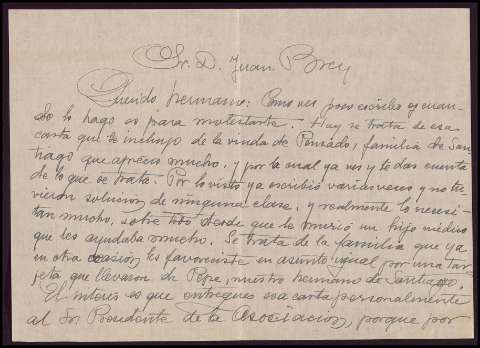 Sr. D. Juan Brey
Querido hermano: Como ves poco escribo y cuan-
do lo hago es para molestarte. Hoy se trata de esa
carta que te incluyo de la viuda de Pensado, familia de San-
tiago que aprecio mucho, y por la cual ya ves y te das cuenta
de lo que se trata. Por lo visto ya escribió varias veces y no tu-
vieron solución de ninguna clase, y realmente lo necesi-
tan mucho, sobre todo desde que le murió un hijo médico
que les ayudaba mucho. Se trata de la familia que ya
en otra ocasión les favoreciste en asunto igual por una tar-
jeta que llevaron de Pepe, nuestro hermano de Santiago.
El interés es que entregues esa carta personalmente
al Sr. Presidente de la Asociación, porque por